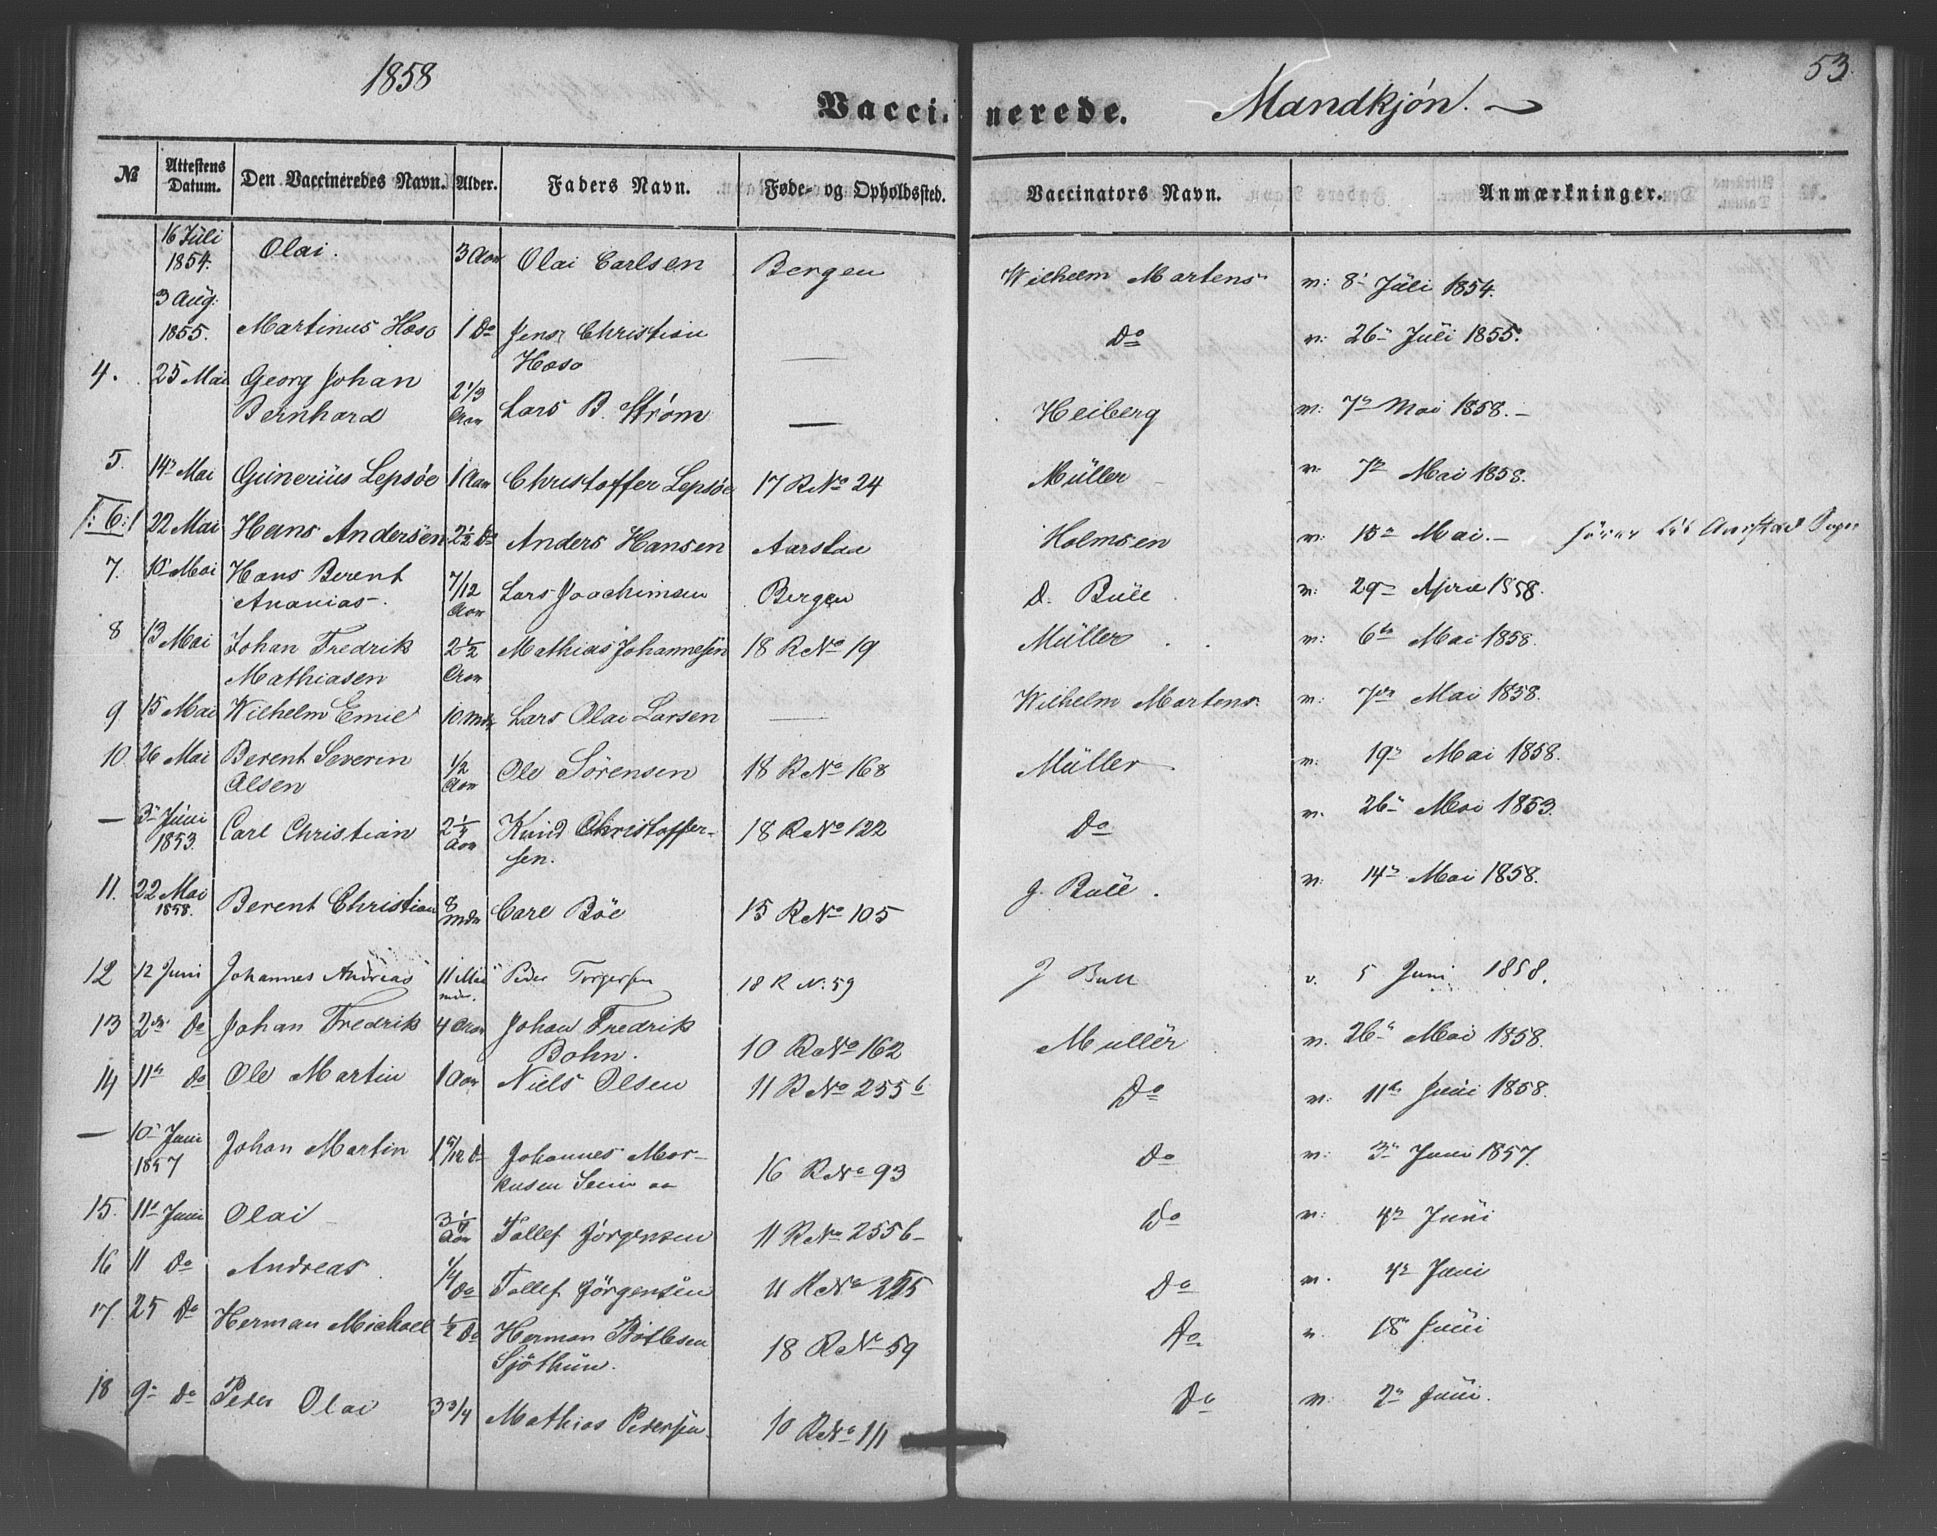 1858
53.
Vaccinerede. Mandkjøn.
№ Attestens Datum. Den Vaccineredes Navn. Alder. Faders Navn. Føde- og Opholdssted. Vaccinators Navn. Anmærkninger.
16 Juli 1854. Olai. 3 Aar Olai Carlsen Bergen Wilhelm Martens v: 8 Juli 1854.
3 Aug: 1855. Martinus Haso 1 Do Jens Christian Haso — Do v: 26 Juli 1855.
4. 25 Mai Georg Johan Bernhard 2 1/3 Aar Lars B. Strøm — Heiberg v: 7de Mai 1858.
5. 14de Mai Gunerius Lepsøe 1 Aar Christoffer Lepsøe 17 R No 24 Müller v. 7de Mai 1858.
/: 6 :/ 22 Mai Hans Andersen 2 1/2 Do Anders Hansen Aarstad Holmsen v: 15 Mai. — hører til Aarstad Sogn
7. 10 Mai Hans Berent Ananias. 7/12 Aar Lars Joachimsen Bergen D. Bull v: 29 April 1858.
8 13 Mai Johan Fredrik Mathiasen 2 1/2 Aar Mathias Johannesen 18 R No 19 Müller v: 6te Mai 1858.
9 15 Mai Wilhelm Emil 10. Mdr Lars Olai Larsen — Wilhelm Martens v: 7de Mai 1858.
10. 26 Mai Berent Severin Olsen 1/2 Aar Ole Sörensen 18 R No 168 Müller v: 19de Mai 1858.
— 3 Juni 1853. Carl Christian 2 1/4 Aar Knud Christoffersen. 18 R No 122 Do v. 26 Mai 1853.
11. 22 Mai 1858. Berent Christian 8 Mdr Carl Böe 15 R No 105 J. Bull. v: 14de Mai 1858.
12 12 Juni Johannes Andreas 11 Mdr. Peder Torgersen 18 R N. 59 J Bull v. 5 Juni 1858.
13 2den Do Johan Fredrik 4 Aar Johan Fredrik Bohn. 10 R No 162 Müller v. 26 Mai 1858.
14 11te Do Ole Martin 1 Aar Niels Olsen 11 R No 255 b Do v: 11te Juni 1858.
— 10 Juni 1857 Johan Martin 1 Do Johannes Markusen 16 R No 93 Do v: 3 Juni 1857.
15. 11 Juni Olai 3 1/4 Aar Tollef Jörgensen 11 R No 255 b Do v: 4de Juni
16 11 Do Andreas 1/4 Do Tollef Jörgensen 11 R No 255 Do v. 4de Juni
17. 25 Do Herman Michael 1/2 Do Herman Botlesen Sjöthun. 18 R No 59 Do v. 18 Juni
18 9 Do Peder Olai 3 3/4 Mathias Pedersen 10 R No 111 Do v: 2 Juni.